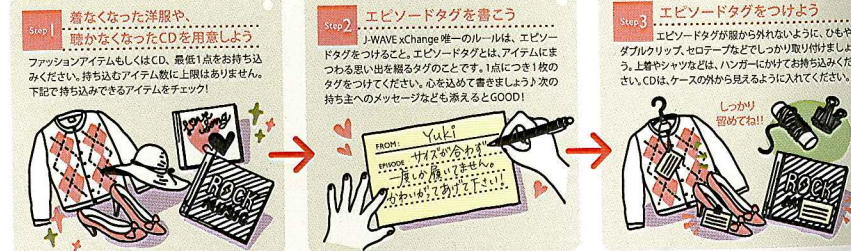 Step 1
着なくなった洋服や、
聴かなくなったCDを用意しよう
ファッションアイテムもしくはCD、最低1点をお持ち込
みください。持ち込むアイテム数に上限はありません。
下記で持ち込みできるアイテムをチェック!
Love song
ROCK
MUSIC
Step 2
エピソードタグを書こう
J-WAVE xChange 唯一のルールは、エピソー
ドタグをつけること。エピソードタグとは、アイテムにま
つわる思い出を綴るタグのことです。1点につき1枚の
タグをつけてください。心を込めて書きましょう♪次の
持ち主へのメッセージなども添えるとGOOD!
FROM: Yuki
EPISODE サイズが合わず
一度しか履いてません。
かわいがってあげて下さい!!
Step 3
エピソードタグをつけよう
エピソードタグが服から外れないように、ひもや
ダブルクリップ、セロテープなどでしっかり取り付けましょ
う。上着やシャツなどは、ハンガーにかけてお持ち込みくだ
さい。CDは、ケースの外から見えるように入れてください。
しっかり
留めてね!!
ROCK